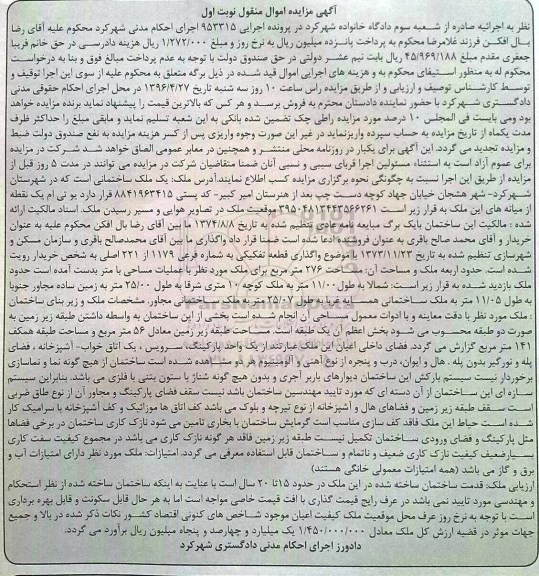 آگهی مزایده اموال منقول نوبت اول
نظر به اجرائیه صادره از شعبه سوم دادگاه خانواده شهرکرد در پرونده اجرایی ۹۵۳۳۱۵ اجرای احکام مدنی شهرکرد محکوم علیه آقای رضا
بال افکن فرزند غلامرضا محکوم به پرداخت پانزده میلیون ریال به نرخ روز و مبلغ ۱/۲۷۲/۰۰۰ ریال هزینه دادرسی در حق خانم فریبا
جعفری مقدم مبلغ ۴۵/۹۶۹/۱۸۸ ریال بابت نیم عشر دولتی در حق صندوق دولت با توجه به عدم پرداخت مبالغ فوق و بنا به درخواست
محکوم له به منظور استیفای محکوم به و هزینه های اجرایی اموال قید شده در ذیل برگه متعلق به محکوم علیه از سوی این اجرا توقیف و
توسط کارشناس توصیف و ارزیابی و از طریق مزایده راس ساعت ۱۰ روز سه شنبه تاریخ ۱۳۹۶/۴/۲۷ در محل اجرای احکام حقوقی مدنی
دادگستری شهرکرد با حضور نماینده دادستان محترم به فروش برسد و هر کس که بالاترین قیمت را پیشنهاد نماید برنده مزایده خواهد
بود ومی بایست فی المجلس ۱۰ درصد مورد مزایده راطی چک تضمین شده بانکی به این شعبه تسلیم نماید و مابقی مبلغ را حداکثر ظرف
مدت یکماه از تاریخ مزایده به حساب سپرده واریزنماید در غیر این صورت وجوه واریزی پس از کسر هزینه مزایده به نفع صندوق دولت ضبط
و مزایده تجدید می گردد. این آگهی برای یکبار در روزنامه محلی منتشر و همچنین در معابر عمومی الصاق خواهد شد شرکت در مزایده
برای عموم آزاد است به استثناء مسئولین اجرا قربای سببی و نسبی آنان ضمنا متقاضیان شرکت در مزایده می توانند در مدت ۵ روز قبل از
مزایده از طریق این اجرا نسبت به چگونگی نحوه برگزاری مزایده کسب اطلاع نمایند.آدرس ملک: یک ملک ساختمانی است که در شهرستان
شهرکرد- شهر هشجان خیابان جهاد کوچه دست چپ بعد از هنرستان امیر کبیر- کد پستی ۸۸۴۱۹۶۳۴۱۵ قرار دارد یو تی ام یک نقطه
از میانه های این ملک به قرار زیر است موقعیت ملک در تصاویر هوایی و مسیر رسیدن ملک. اسناد مالکیت ارائه
شده : مالکیت این ساختمان بایک برگ مبایعه نامه عادی تنظیم شده به تاریخ ۱۳۷۴/۸/۸ ما بین آقای رضا بال افکن محکوم علیه به عنوان
خریدار و آقای محمد صالح باقری به عنوان فروشنده ادعا شده است ضمنا قرار داد واگذاری ما بین آقای محمدصالح باقری و سازمان مسکن و
شهرسازی تنظیم شده به تاریخ ۱۳۷۳/۱۱/۲۳ با موضوع واگذاری قطعه تفکیکی به شماره فرعی ۱۱۷۹ از ۲۲۱ اصلی به شخص خریدار رویت
شده است. حدود اربعه ملک و مساحت آن: مساحت ۲۷۶ متر مربع برای ملک مورد نظر با عملیات مساحی با متر بدست آمده است حدود
ملک بازدید شده به قرار زیر است: شمالا به طول ۱۱/۰۰ متر به ملک کوچه ۱۰ متری شرقا به طول ۲۵/۰۰ متر به زمین ساده مجاور جنوبا
به طول ۱۱/۰۵ متر به ملک ساختمانی همسایه غربا به طول ۲۵/۰۷ متر به ملک ساختمانی مجاور. مشخصات ملک و زیر بنای ساختمان
: ملک مورد نظر با دقت معاینه و با ادوات معمول مساحی آن انجام شده است بخشی از این ساختمان به واسطه داشتن طبقه زیر زمین به
صورت دو طبقه محسوب می شود بخش اعظم آن یک طبقه است. مساحت طبقه زیر زمین معادل ۵۶ متر مربع و مساحت طبقه همکف
۱۴۱ متر مربع گزارش می گردد. فضای داخلی اعیان این ملک عبارتند از یک واحد پارکینگ، سرویس ، یک اتاق خواب- آشپزخانه ، فضای
پله و نورگیر بدون پله . هال و ایوان، درب و پنجره از نوع آهنی و آلومینیوم هر دو مشاهده شده است ساختمان از هیچ گونه نما و نماسازی
برخوردار نیست سیستم بارکش این ساختمان دیوارهای باربر آجری و بدون هیچ گونه شناژ یا ستون بتنی یا فلزی می باشد. بنابراین سیستم
سازه ای این ساختمان از آن دسته ای که مورد تایید مهندسین ساختمان باشد نیست سقف فضای پارکینگ و مجاور آن از نوع طاق ضربی
است سقف طبقه زیر زمین و فضاهای هال و آشپزخانه از نوع تیرچه و بلوک می باشد کف اتاق ها موزائیک و کف آشپزخانه با سرامیک کار
شده است حیاط این ملک فاقد کف سازی مناسب است گرمایش ساختمان با بخاری تامین می شود نازک کاری ساختمان در برخی فضاها
مثل پارکینگ و فضای ورودی ساختمان تکمیل نیست طبقه زیر زمین فاقد هر گونه نازک کاری می باشد در مجموع کیفیت سفت کاری
بسیارضعیف کیفیت نازک کاری ضعیف و ناتمام و ساختمان قابل استفاده معرفی می گردد. امتیازات: ملک مورد نظر دارای امتیازات آب و
برق و گاز می باشد (همه امتیازات معمولی خانگی هستند)
ارزیابی ملک: قدمت ساختمان ساخته شده در این ملک در حدود ۱۵تا ۲۰ سال است با عنایت به اینکه ساختمان ساخته شده از نظر استحکام
و مهندسی مورد تایید نمی باشد در عرف رایج قیمت گذاری با افت قیمت خاصی مواجه است اما به هر حال قابل سکونت و قابل بهره برداری
است با توجه به نرخ روز عرف محل موقعیت ملک کیفیت اعیان موجود شاخص های کنونی اقتصاد کشور نکات ذکر شده در بالا و جمیع
جهات موثر در قضیه ارزش کل ملک معادل ۱/۴۵۰/۰۰۰/۰۰۰ یک میلیارد و چهارصد و پنجاه میلیون ریال برآورد می گردد.
دادورز اجرای احکام مدنی دادگستری شهرکرد